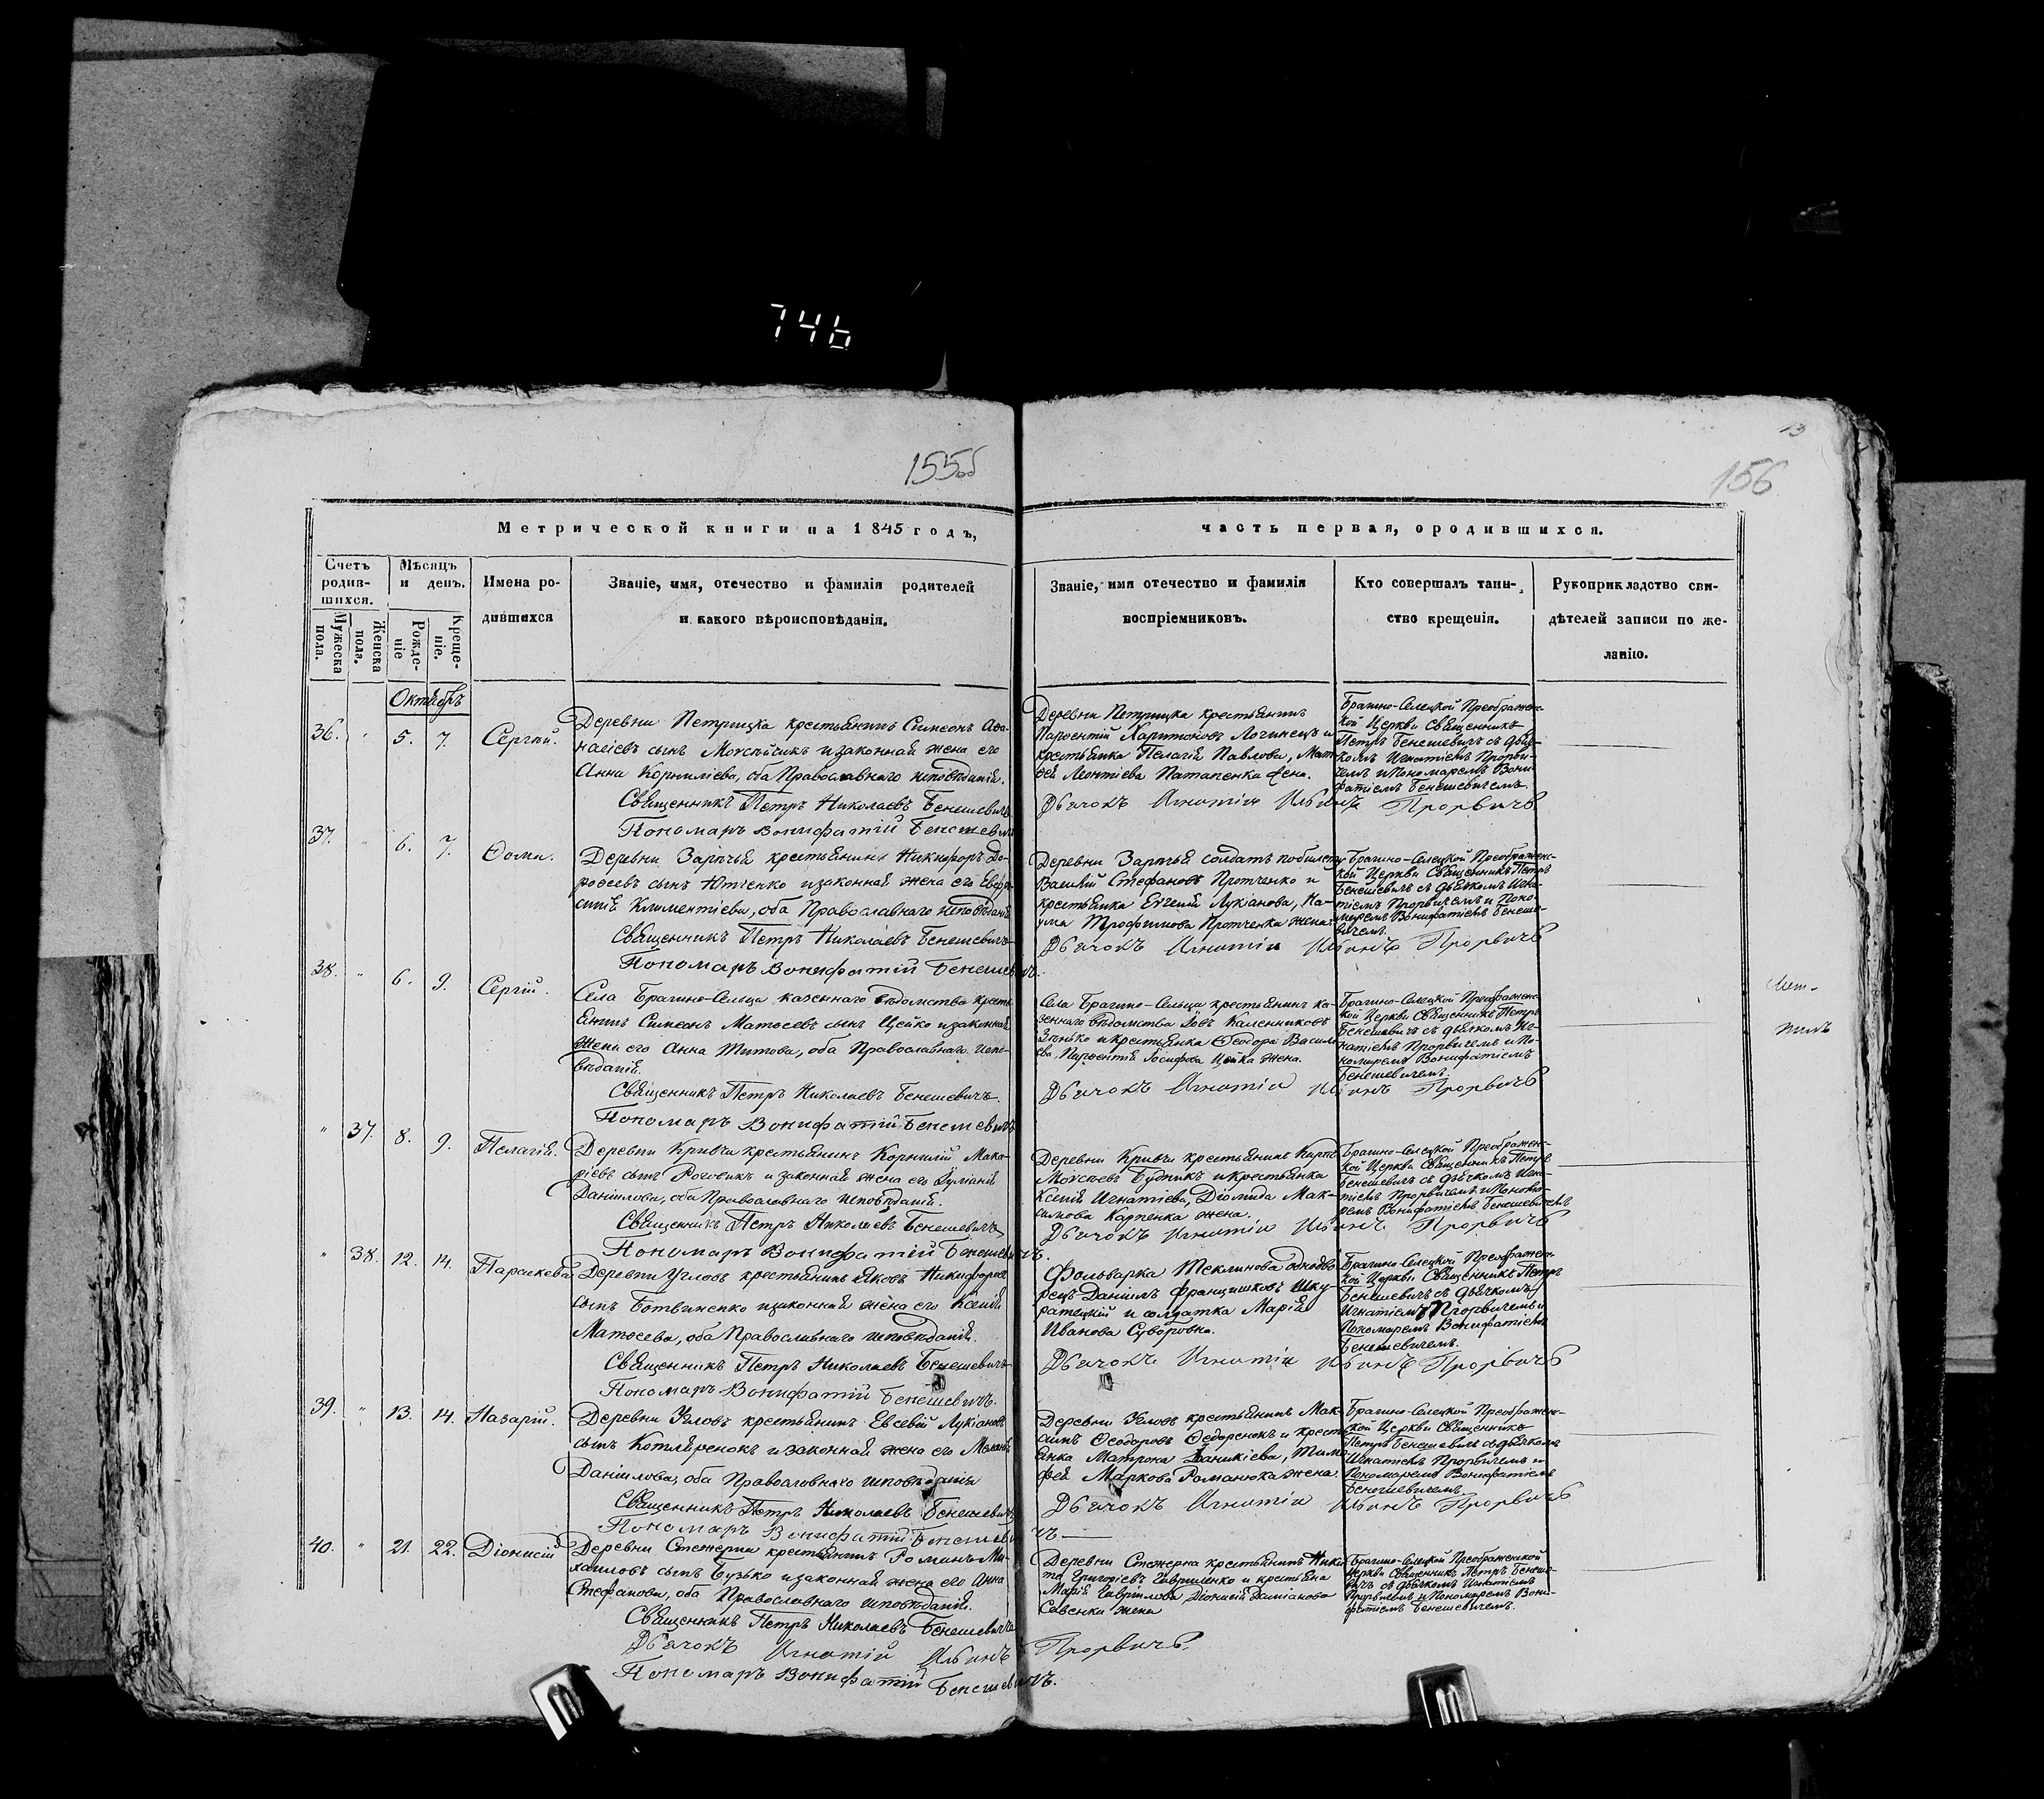 746
155об
13
156
Метрической книги на 1845 годъ,
часть первая, ородившихся.
Счетъ родив-
шихся.
Мужеска пола.
Женска пола.
Мѣсяцъ
и день.
Рожде-
ніе
Креще-
ніе.
Имена ро-
дившихся
Званіе, имя, отечество и фамилія родителей
и какого вѣроисповѣданія.
Званіе, имя отечество и фамилія
воспріемниковъ.
Кто совершалъ таин-
ство крещенія.
Рукоприкладство сви-
дѣтелей записи по же-
ланію.
Октябрь
36. " 5. 7. Сергій.
Деревни Петрицка крестьянинъ Симеонъ Аѳа-
насіевъ сынъ Моисейчикъ и законная жена его
Анна Корниліева, оба Православнаго исповѣданія.
Священникъ Петръ Николаевъ Бенешевичъ
Пономарь Вонифатій Бенешевичъ
Деревни Петрицка крестьянинъ
Харитоновъ Логинецъ и
крестьянка Пелагія Павлова, Мат-
ѳея Леонтіева Патапенка жена.
Дьячокъ Игнатій Ильинъ Прорвичъ
Брагино-Селецкой Преображен-
кой Церкви Священникъ
Петръ Бенешевичъ съ дьяч-
комъ Игнатіемъ Прорви-
чемъ и Пономаремъ Вони-
фатіемъ Бенешевичемъ.
37. " 6. 7. Ѳома.
Деревни Зарѣчья крестьянинъ Никифоръ До-
роѳеевъ сынъ Ютченко и законная жена его Евфро-
синія Климентіева, оба Православнаго исповѣданія
Священникъ Петръ Николаевъ Бенешевичъ
Пономарь Вонифатій Бенешевичъ.
Деревни Зарѣчья солдатъ побилету
Василій Стефановъ Протченко и
крестьянка Евгенія Лукіанова, На-
ума Трофимова Протченка жена.
Дьячокъ Игнатій Ильинъ Прорвичъ
Брагино-Селецкой Преображенс-
кой Церкви Священникъ Петръ
Бенешевичъ съ дьячкомъ Игна-
тіемъ Прорвичемъ и Поно-
маремъ Вонифатіемъ Бенеше-
вичемъ.
38. " 6. 9. Сергій.
Села Брагино-Сельца казеннаго вѣдомства кресть-
янинъ Симеонъ Матѳеевъ сынъ Цейко и законная
жена его Анна Титова, оба Православнаго испо-
вѣданія.
Священникъ Петръ Николаевъ Бенешевичъ.
Пономарь Вонифатій Бенешевичъ
Села Брагино-Сельца крестьянинъ ка-
зеннаго вѣдомства Іовъ Каленниковъ
Зѣнько и крестьянка Ѳеодора Василь-
ева, Іосифова Цейка жена.
Дьячокъ Игнатій Ильинъ Прорвичъ
Брагино-Селецкой Преображенс-
кой Церкви Священникъ Петръ
Бенешевичъ съ дьячкомъ Иг-
натіемъ Прорвичемъ и По-
номаремъ Вонифатіемъ
Бенешевичемъ.
" 37. 8. 9. Пелагія.
Деревни Кривча крестьянинъ Корнилій Мака-
ріевъ сынъ Роговикъ и законная жена его Іуліанія
Даніилова, оба Православнаго исповѣданія.
Священникъ Петръ Николаевъ Бенешевичъ
Пономарь Вонифатій Бенешевичъ.
Деревни Кривчи крестьянинъ Карпъ
Моисеевъ Будникъ и крестьянка
Ксенія Игнатіева, Діомида Мак-
симова Карпенка жена.
Дьячокъ Игнатій Ильинъ Прорвичъ
Брагино-Селецкой Преображен-
кой Церкви Священникъ Петръ
Бенешевичъ съ дьячкомъ Игна-
тіемъ Прорвичемъ и Понома-
ремъ Вонифатіемъ Бенешевичемъ
" 38. 12. 14. Параскева
Деревни Угловъ крестьянинъ Яковъ Никифоровъ
сынъ Ботвиненко и законная жена его Ксенія
Матѳеева, оба Православнаго исповѣданія.
Священникъ Петръ Николаевъ Бенешевичъ
Пономарь Вонифатій Бенешевичъ.
Фольварка Теклинова однодво-
рецъ Даніилъ Францишковъ Шку-
ратецкій и солдатка Марія
Иванова Суворовна.
Дьячокъ Игнатій Ильинъ Прорвичъ
Брагино-Селецкой Преображен-
кой Церкви Священникъ Петръ
Бенешевичъ съ дьячкомъ
Игнатіемъ Прорвичемъ и
Пономаремъ Вонифатіемъ
Бенешевичемъ.
39. " 13. 14. Назарій.
Деревни Угловъ крестьянинъ Евсевій Лукіановъ
сынъ Котляренокъ и законная жена его Меланія
Даніилова, оба Православнаго исповѣданія
Священникъ Петръ Николаевъ Бенешевичъ
Пономарь Вонифатій Бенешеви
чъ
Деревни Угловъ крестьянинъ Мак-
симъ Ѳеодоровъ Ѳедоренокъ и кресть-
янка Матрона Іоанникіева, Тимо-
фея Маркова Романюка жена.
Дьячокъ Игнатій Ильинъ Прорвичъ
Брагино-Селецкой Преображен-
кой Церкви Священникъ
Петръ Бенешевичъ съ дьячкомъ
Игнатіемъ Прорвичемъ и
Пономаремъ Вонифатіемъ
Бенешевичемъ.
40. " 21. 22. Діонисій
Деревни Стежерна крестьянинъ Романъ Ми-
хаиловъ сынъ Бузько и законная жена его Анна
Стефанова, оба Православнаго исповѣданія.
Священникъ Петръ Николаевъ Бенешевичъ
Дьячокъ Игнатій Ильинъ Прорвичъ.
Пономарь Вонифатій Бенешевичъ.
Деревни Стежерна крестьянинъ Ники-
та Григоріевъ Гавриленко и крестьянка
Марія Гавріилова Діонисія Даміанова
Савенка жена
Брагино-Селецкой Преображенской
Церкви Священникъ Петръ Бенеше-
вичъ съ дьячкомъ Игнатіемъ
Прорвичемъ и Пономаремъ Вони-
фатіемъ Бенешевичемъ.